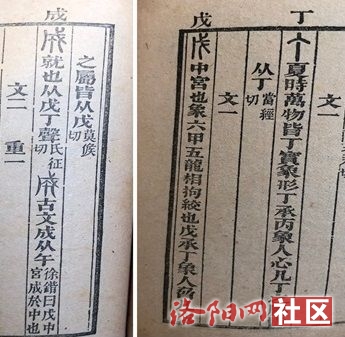 成
之屬皆从戊莫候切
成就也从戊丁聲氏征切成古文成从午徐鍇曰戊中宮成於中也
文二 重一
丁
戊
文一
丁夏時萬物皆丁實象形丁承丙象人心凡丁
从丁當經切
文一
戊中宮也象六甲五龍相拘絞也戊承丁象人
洛阳网社区